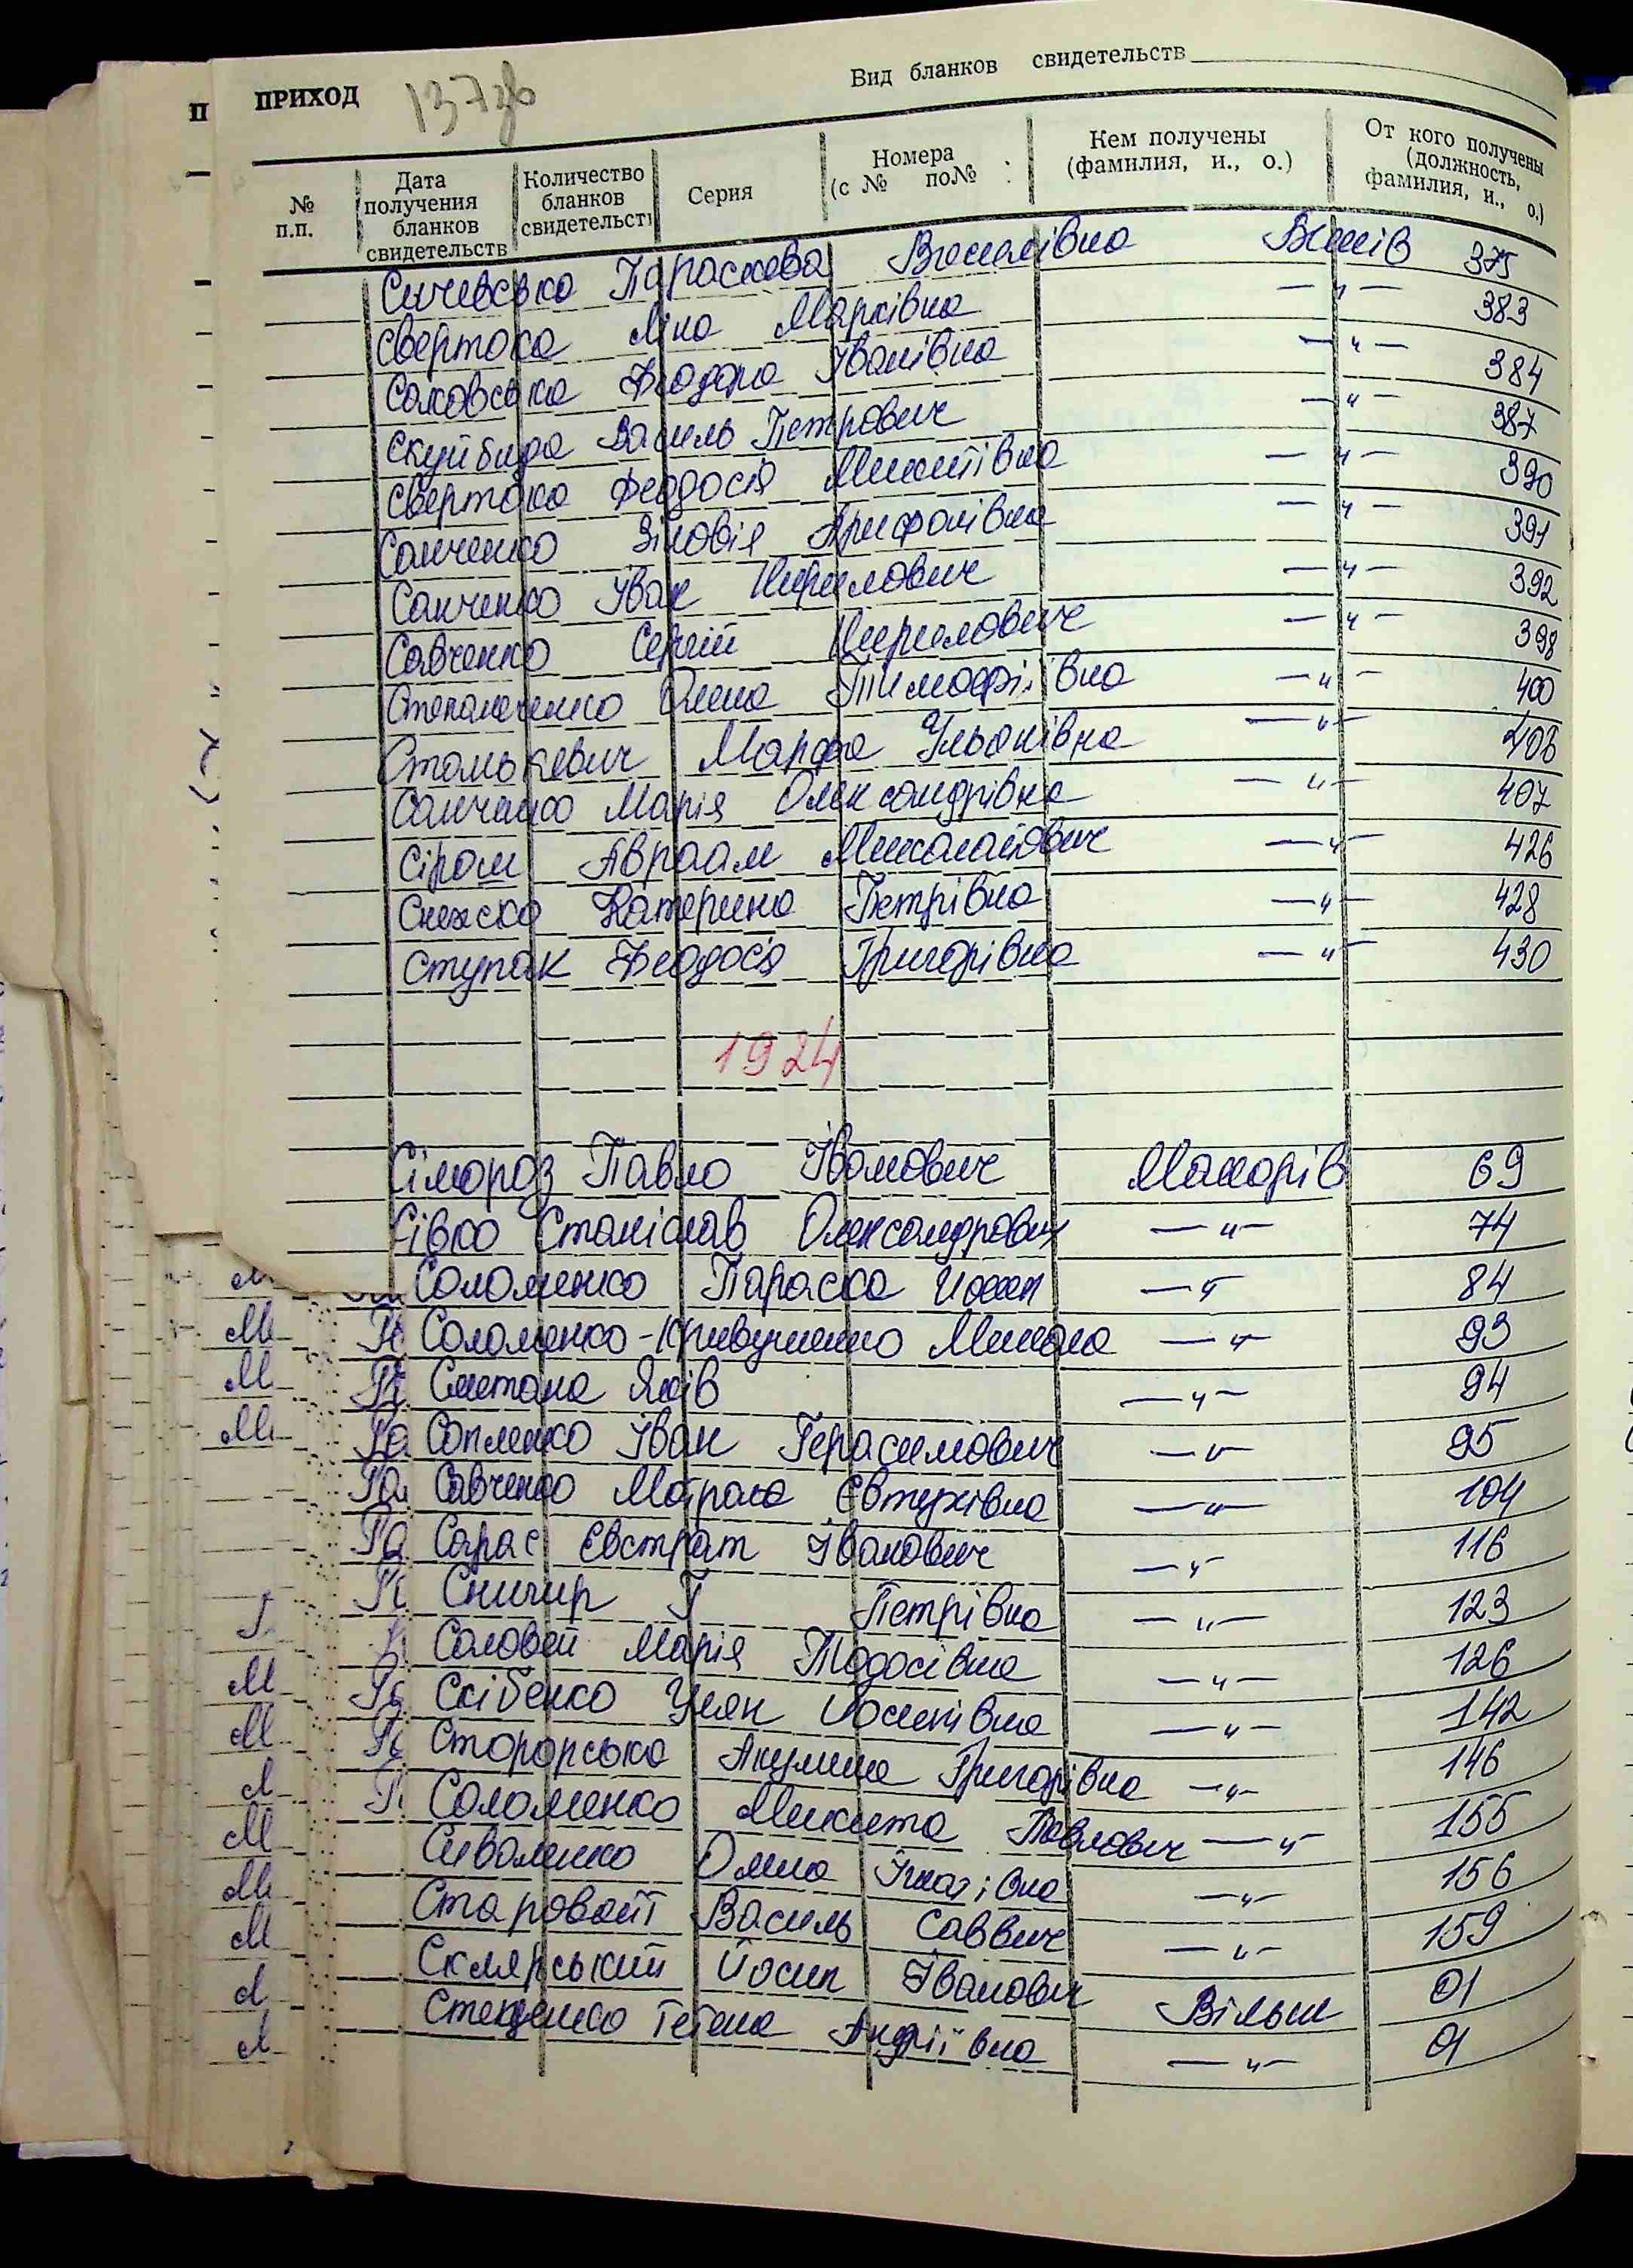 ПРИХОД 137зв Вид бланков свидетельств
№ п.п.
Дата получения бланков свидетельств
Количество бланков свидетельств
Серия
Номера (с № по№
Кем получены (фамилия, и., о.)
От кого получены (должность, фамилия, и., о.)
Параскева Василівна 375
Свертока Марківна —"— 383
Саковська Феодора Іванівна —"— 384
Скуйбида Василь Петрович —"— 387
Свертока Феодосія Микитівна —"— 390
Санченко Зіновія Трифонівна —"— 391
Санченко Іван Кирилович —"— 392
Савченко Сергій Кирилович —"— 398
Олена Тимофіївна —"— 400
Марфа Ульянівна —"— 406
Марія Олександрівна —"— 407
Авраам Миколайович —"— 426
Катерина Петрівна —"— 428
Ступак Феодосія Григорівна —"— 430
1924
Сімороз Павло Іванович Макорів 69
Сівко Станіслав Олександрович —"— 74
Соломенко Параска —"— 84
Соломенко- Микола —"— 93
Сметана Яків —"— 94
Сопленко Іван Герасимович —"— 95
Савченко Євтухівна —"— 104
Сарас Євстрат Іванович —"— 116
Снигир Г Петрівна —"— 123
Соловей Марія Тодосівна —"— 126
Скібенко Улян Йосипівна —"— 142
Акулина Григорівна —"— 146
Соломенко Микита Павлович —"— 155
Сиваленко Олена Ігнатівна —"— 156
Старовойт Василь Саввич —"— 159
Склярський Йосип Іванович 01
Стеценко Тетена Андріївна —"— 01